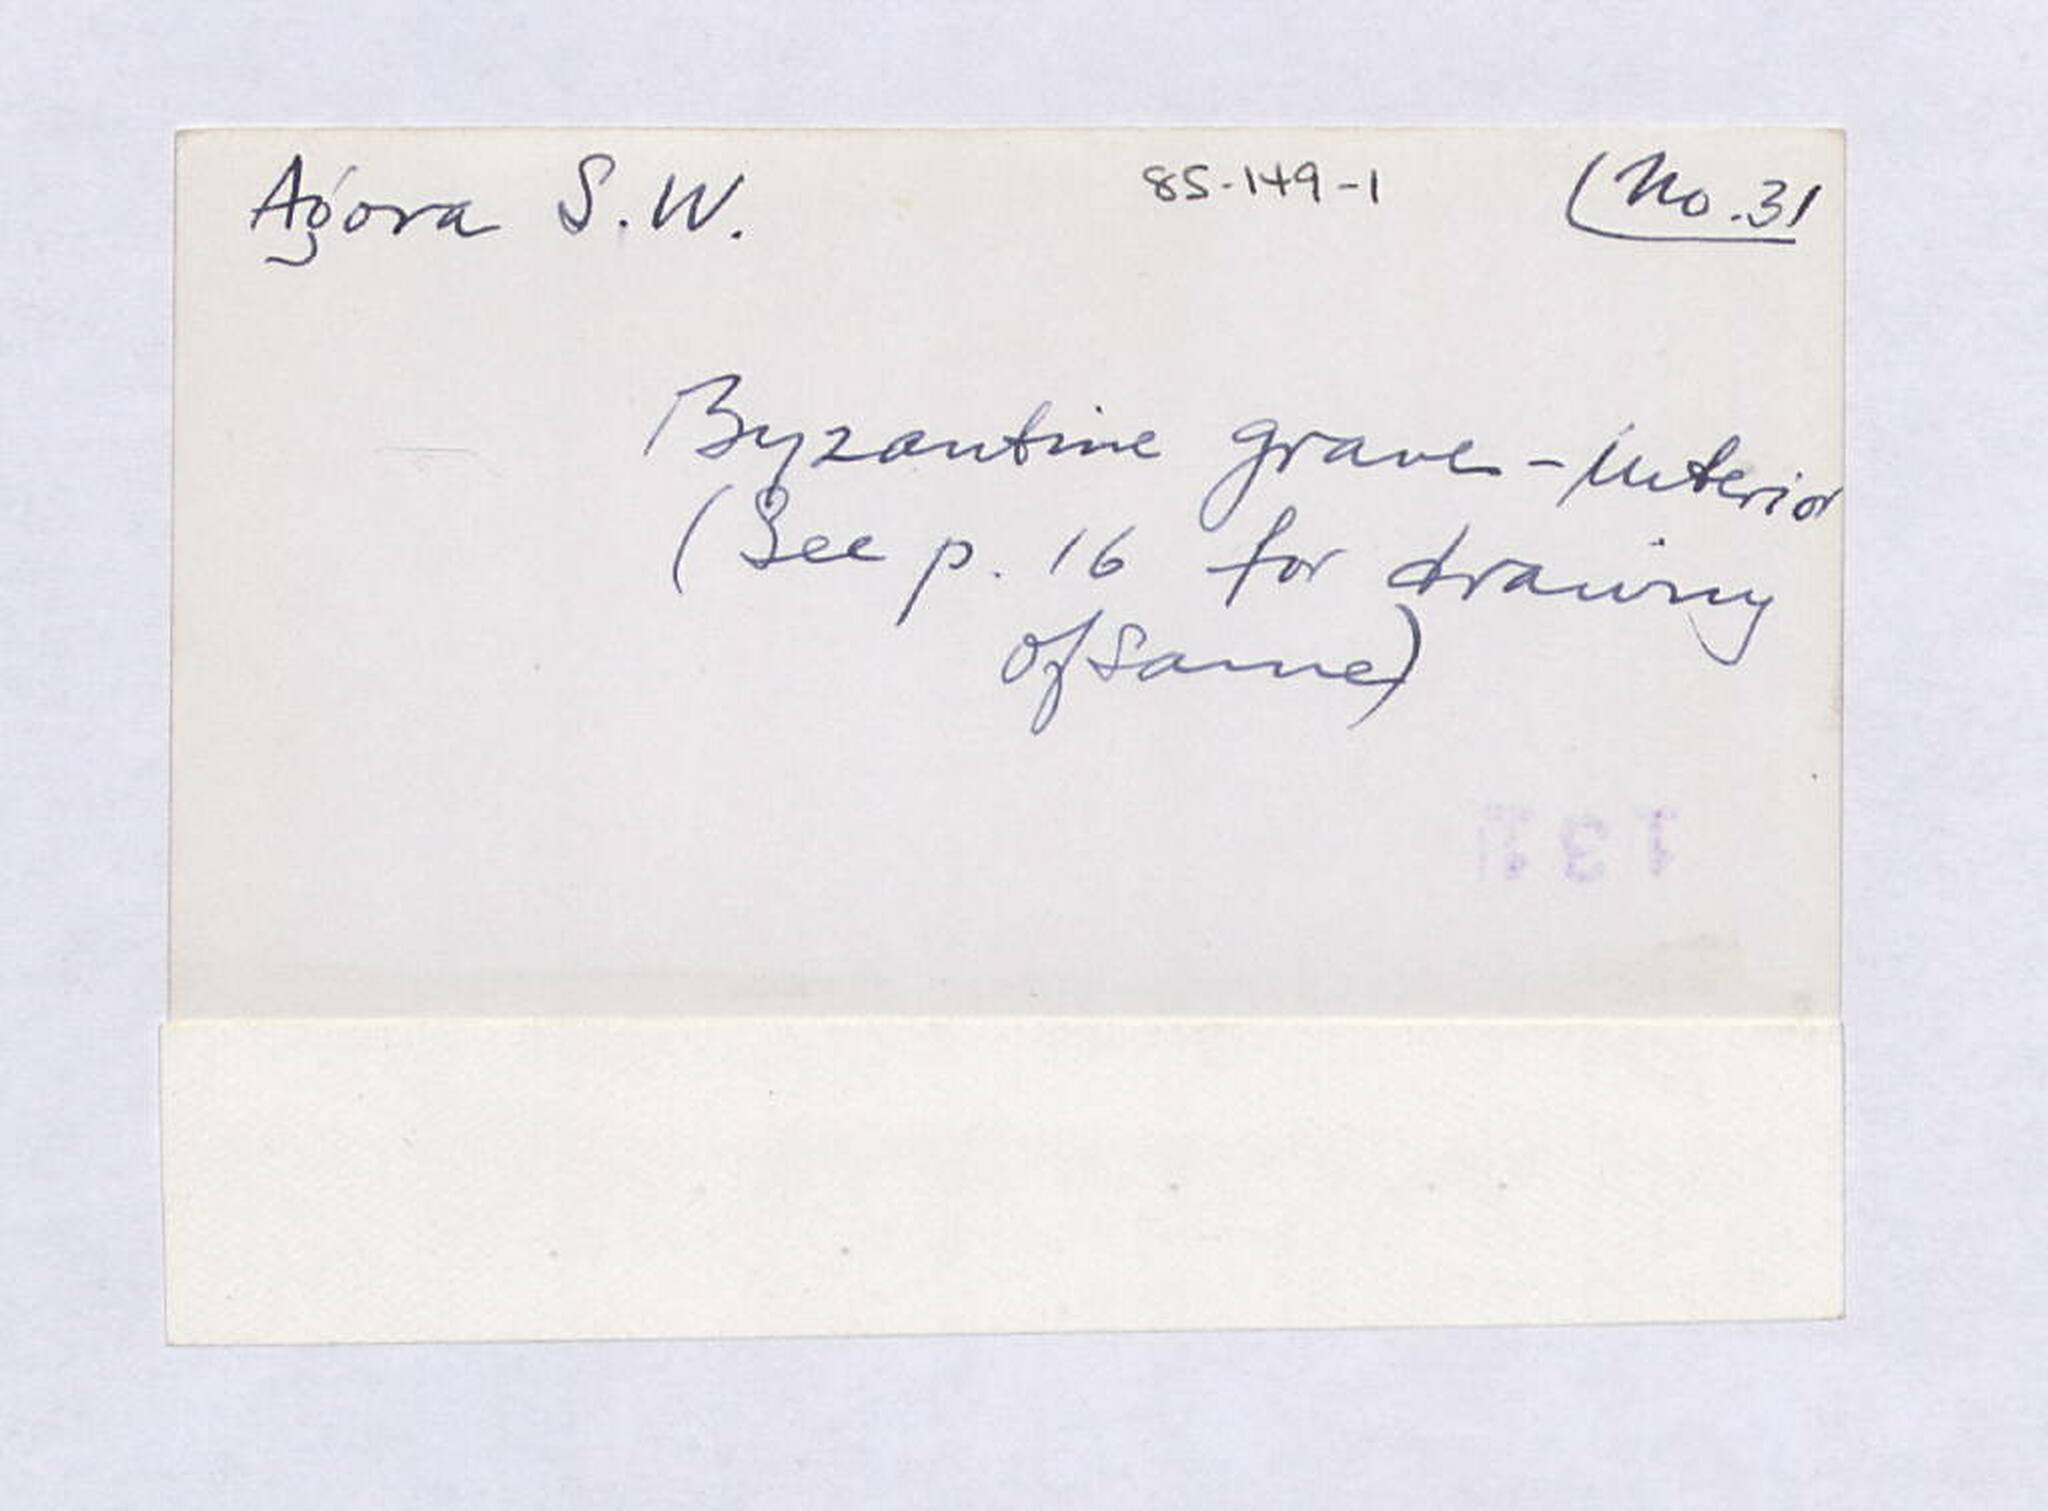 Agora S.W. 85-149-1 (No. 31
Byzantine grave - interior
(See p. 16 for drawing
of same)
131